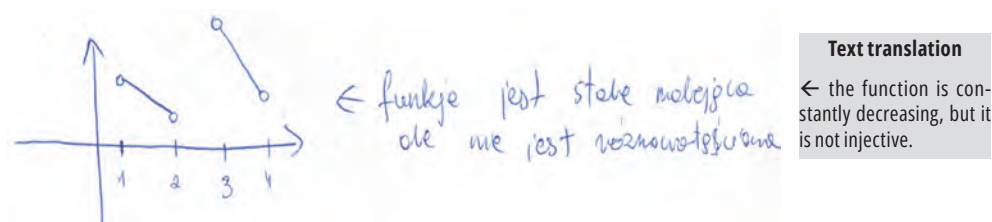 ← funkcje jest stale malejąca
ale nie jest różnowartościowa
1 2 3 4
Text translation
← the function is con-
stantly decreasing, but it
is not injective.